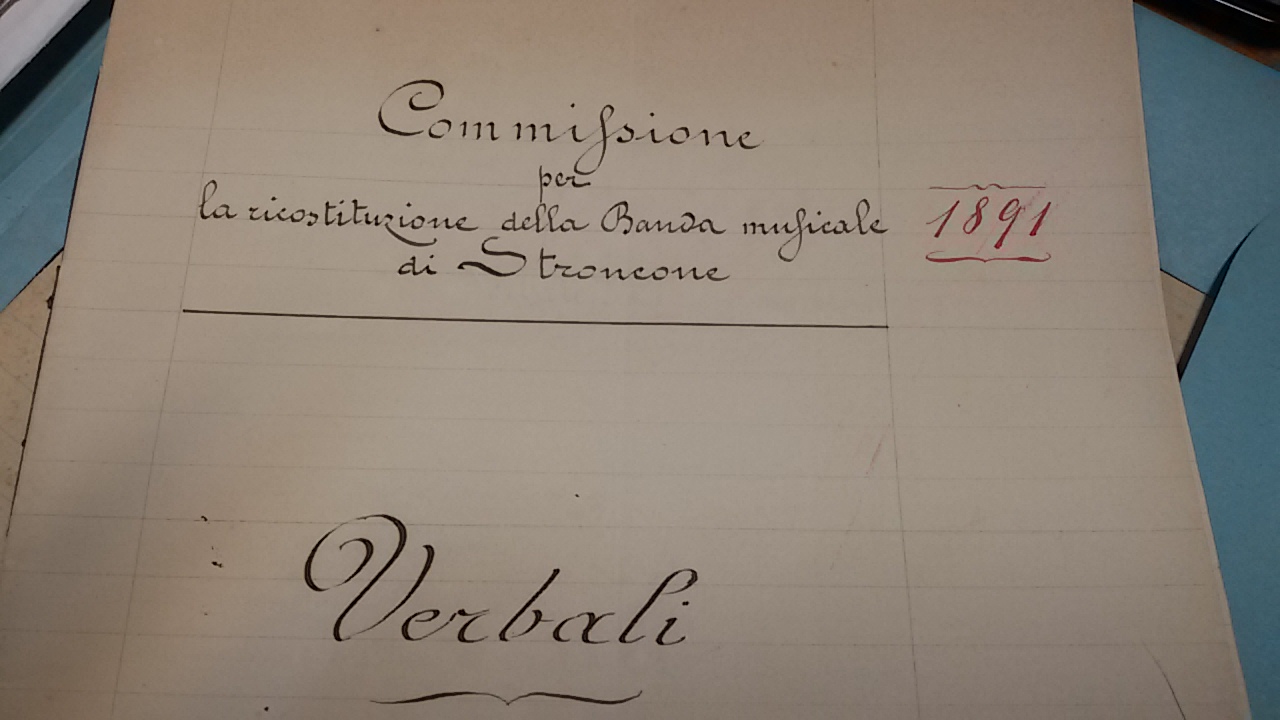 Commissione
per
la ricostituzione della Banda musicale
di Stroncone
1891
Verbali